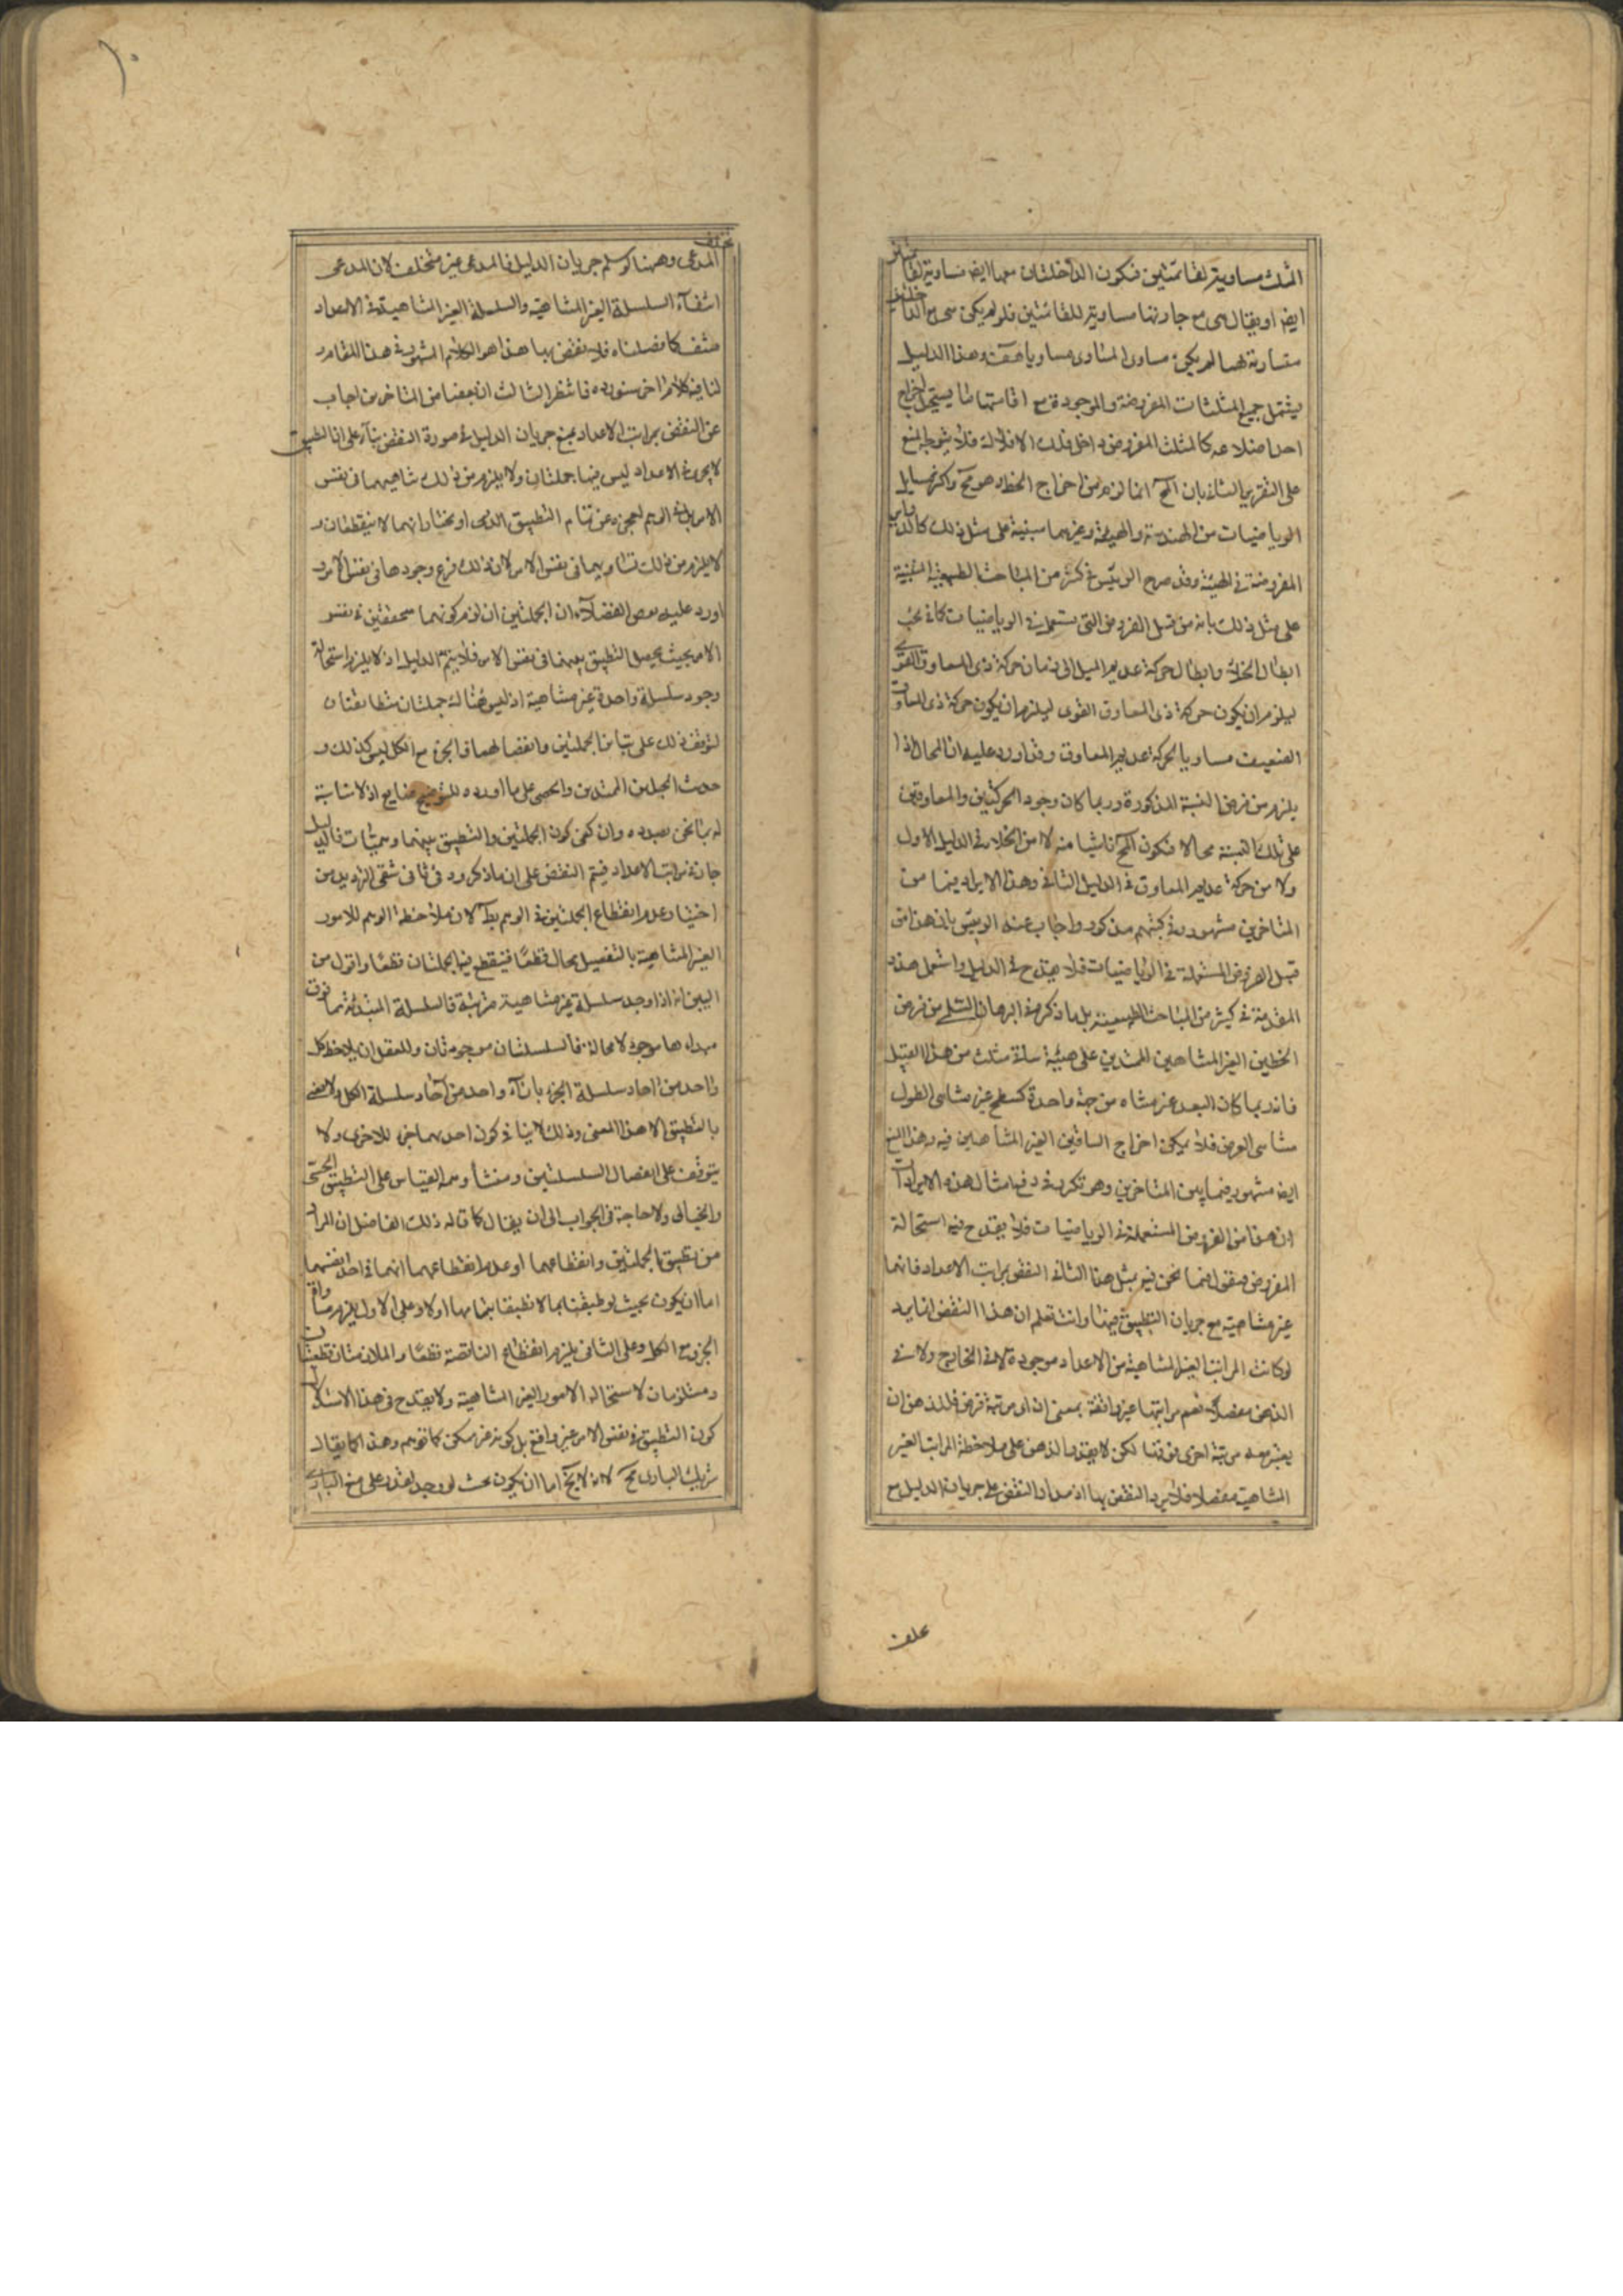 المثلث مساوية لقائمتين فتكون الداخلتان معها ايضا مساوية لقائمتين
ايضا او يقال هى مع جارتها مساوية للقائمتين فلو لم يكن هى مع الداخلتين
متساوية لهما لم يكن مساوى المساوى مساويا هف وهذا الدليل
يشتمل جميع المثلثات المفروضة والموجودة مع اقامتها فيما يستحيل اخراج
احد اضلاعه كالمثلث المفروض داخل فلك الافلاك فلا يتوجه المنع
على التقرير الثانى بان المح انما لزم من اخراج الخط وهو مح واكثر مسايل
الرياضيات من الهندسة والهيئة وغيرهما مبنية على مثل ذلك كالدواير
المفروضة فى الهيئة وقد صرح الرييس فى كثير من المباحث الطبيعية المبنية
على مثل ذلك بانه من قبيل الفروض التى يستعمل فى الرياضيات كما فى بحث
ابطال الخلاء وابطال حركة عديم الميل الى زمان حركة ذى المعاوق القوى
ليلزم ان يكون حركة ذى المعاوق القوى ليلزم ان يكون حركة ذى المعاوق
الضعيف مساويا لحركة عديم المعاوق وقد اورد عليه ان المحال اذا
يلزم من فرض النسبة المذكورة وربما كان وجود الحركتين والمعاوقين
على تلك النسبة محالا فتكون المح ناشيا منه لا من الخلاء فى الدليل الاول
ولا من حركة عديم المعاوق فى الدليل الثانى وهذا الايراد فيما من
المتاخرين مشهور وفى كتبهم مذكور واجاب عنه الرييس بان هذا من
قبيل الفروض المستعملة فى الرياضيات فلا يقدح فى الدليل واستعمل هذه
المقدمة فى كثير من المباحث الطبيعية بل ما ذكر فى البرهان السلمى من فرض
الخطين الغير المتناهيين الممتدين على هيئة ساقى مثلث من هذا القبيل
فانه ربما كان البعد غير متناه من جهة واحدة كسطح غير متناهى الطول
متناهى العرض فلا يمكن اخراج الساقين الغير المتناهيين فيه وهذا المنع
ايضا مشهور فيما بين المتاخرين وهو تكرير فى دفع امثال هذه الايرادات
ان هذا من الفروض المستعملة فى الرياضيات فلا يقدح فيه استحالة
المفروض فنقول فيما نحن فيه بمثل هذا الثانى النقض بمراتب الاعداد فانها
غير متناهية مع جريان التطبيق فيها وانت تعلم ان هذا النقض انما يرد
لو كانت المراتب الغير المتناهية من الاعداد موجودة لا فى الخارج ولا فى
الذهن مفصلا نعم مراتبها غير واقفة بمعنى ان اى مرتبة فرض فللذهن ان
يعتبر معه مرتبة اخرى فوقها لكن لا يقدر الذهن على ملاحظة المراتب الغير
المتناهية مفصلا فلا يرد النقض بها اذ مدار النقض على جريان الدليل مع
تخلف
١٠
المدعى وههنا لو سلم جريان الدليل فالمدعى غير متخلف لان المدعى
انتفاء السلسلة الغير المتناهية والسلسلة الغير المتناهية فى الاعداد
منتف كما فصلناه فلا نقض بها هذا هو الكلام المشهور فى هذا المقام و
لنا فيه كلام اخر سنورده فانتظر الثالث ان بعضا من المتاخرين اجاب
عن النقض بمراتب الاعداد بمنع جريان الدليل فى صورة النقض بناء على ان التطبيق
لا يجرى فى الاعداد ليس فيها جملتان ولا يلزم من ذلك تناهيهما فى نفس
الامر بل فى الوهم لعجزه عن تمام التطبيق الذى او يختار انهما لا ينقطعان و
لا يلزم من ذلك تساويهما فى نفس الامر لان ذلك فرع وجودها فى نفس الامر و
اورد عليه بعض الفضلاء ان الجملتين ان لزم كونهما متحققتين فى نفس
الامر بحيث يحصل التطبيق بينهما فى نفس الامر فلا يتم الدليل اذ لا يلزم استحالة
وجود سلسلة واحدة غير متناهية اذ ليس هناك جملتان متطابقتان
لتوقف ذلك على تباين الجملتين وانفصالهما والجزء مع الكل ليس كذلك و
حديث الجبلين الممتدين والحصى على ما اورده للتوضيح ضايع اذ لا مشابهة
له بما نحن بصدده وان كفى كون الجملتين والتطبيق بينهما وهميات فالدليل
جار فى مراتب الاعداد فيتم النقض على ان ما ذكروه فى ثانى شقى الترديد من
اختيار عدم انقطاع الجملتين فى الوهم بط لان ملاحظة الوهم للامور
الغير المتناهية بالتفصيل محال قطعا فينقطع فيه الجملتان قطعا واقول من
البين انه اذا وجد سلسلة غير متناهية مترتبة فالسلسلة المبتدئة مما فوق
مبداءها موجودة لا محالة فالسلسلتان موجودتان وللعقل ان يلاحظ كل
واحد من احاد سلسلة الجزء بازاء واحد من احاد سلسلة الكل ولا نعنى
بالتطبيق الا هذا المعنى وذلك لا ينافى كون احدهما جزء للاخرى ولا
يتوقف على انفصال السلسلتين ومنشأ وهمه القياس على التطبيق الحسى
والخيالى ولا حاجة فى الجواب الى ان يقال كما قاله ذلك الفاضل ان المراد
من تطبيق الجملتين وانقطاعهما او عدم انقطاعهما انهما فى حد انفسهما
اما ان يكون بحيث لو طبقتا بهما لانطبقا بتمامها او لا وعلى الاول يلزم مساواة
الجزء مع الكل وعلى الثانى يلزم انقطاع الناقصة قطعا والملازمتان قطعيتان
ومستلزمان لاستحالة الامور الغير المتناهية ولا يقدح فى هذا الاستدلال
كون التطبيق فى نفس الامر غير واقع بل كونه غير ممكن كما توهم وهذا كما يقال
شريك البارى مح لانه لا يخ اما ان يكون بحيث لو وجد لقدر على منع البارى